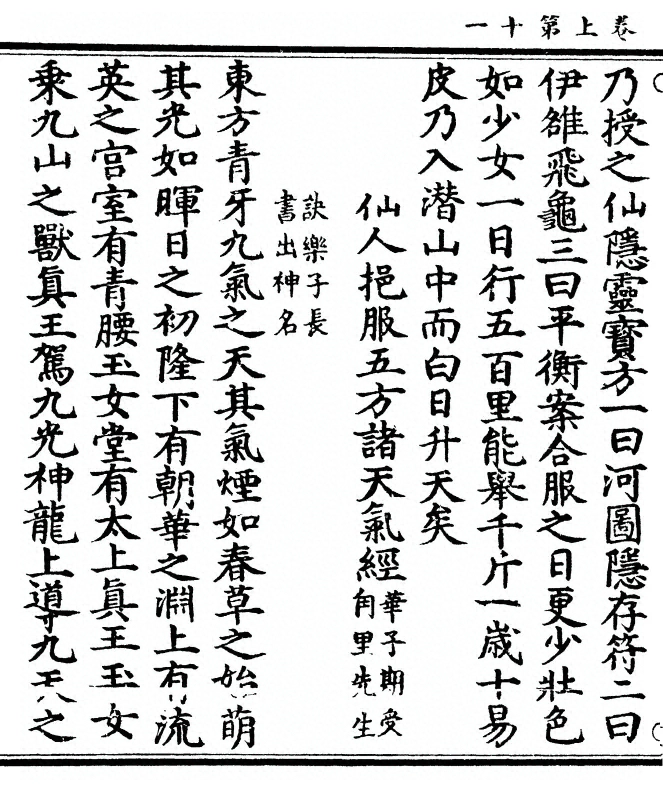 卷上第十一
乃授之仙隱靈寶方一曰河圖隱存符二曰
伊雒飛龜三曰平衡案合服之日更少壯色
如少女一日行五百里能舉千斤一歲十易
皮乃入潜山中而白日升天矣
仙人挹服五方諸天氣經
華子期受
角里先生
訣樂子長
書出神名
東方青牙九氣之天其氣煙如春草之始萌
其光如暉日之初隆下有朝華之淵上有流
英之宮室有青腰玉女堂有太上眞王玉女
乘九山之獸眞王駕九光神龍上導九天之